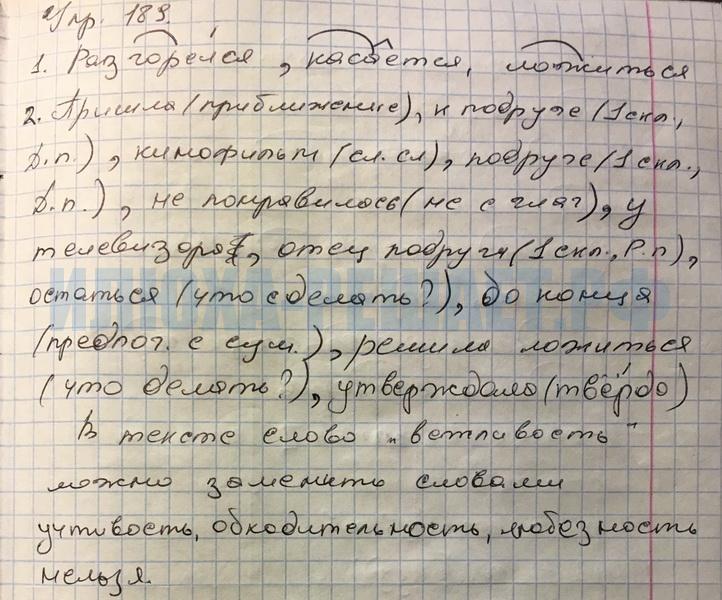 Упр. 189.
1. Разгорелся, касается, ложиться
2. Пришла (приближение), к подруге (1 скл.,
Д.п.), кинофильм (сл. сл), подруге (1 скл.,
Д.п.), не понравилось (не с глаг), у
телевизора, отец подруги (1 скл., Р.п),
остаться (что сделать?), до конца
(предлог. с сущ.), решила ложиться
(что делать?), утверждала (твёрдо)
В тексте слово „вежливость"
можно заменить словами
учтивость, обходительность, любезность
нельзя.
ИЛЮХА-РЕШАЕТ.РФ